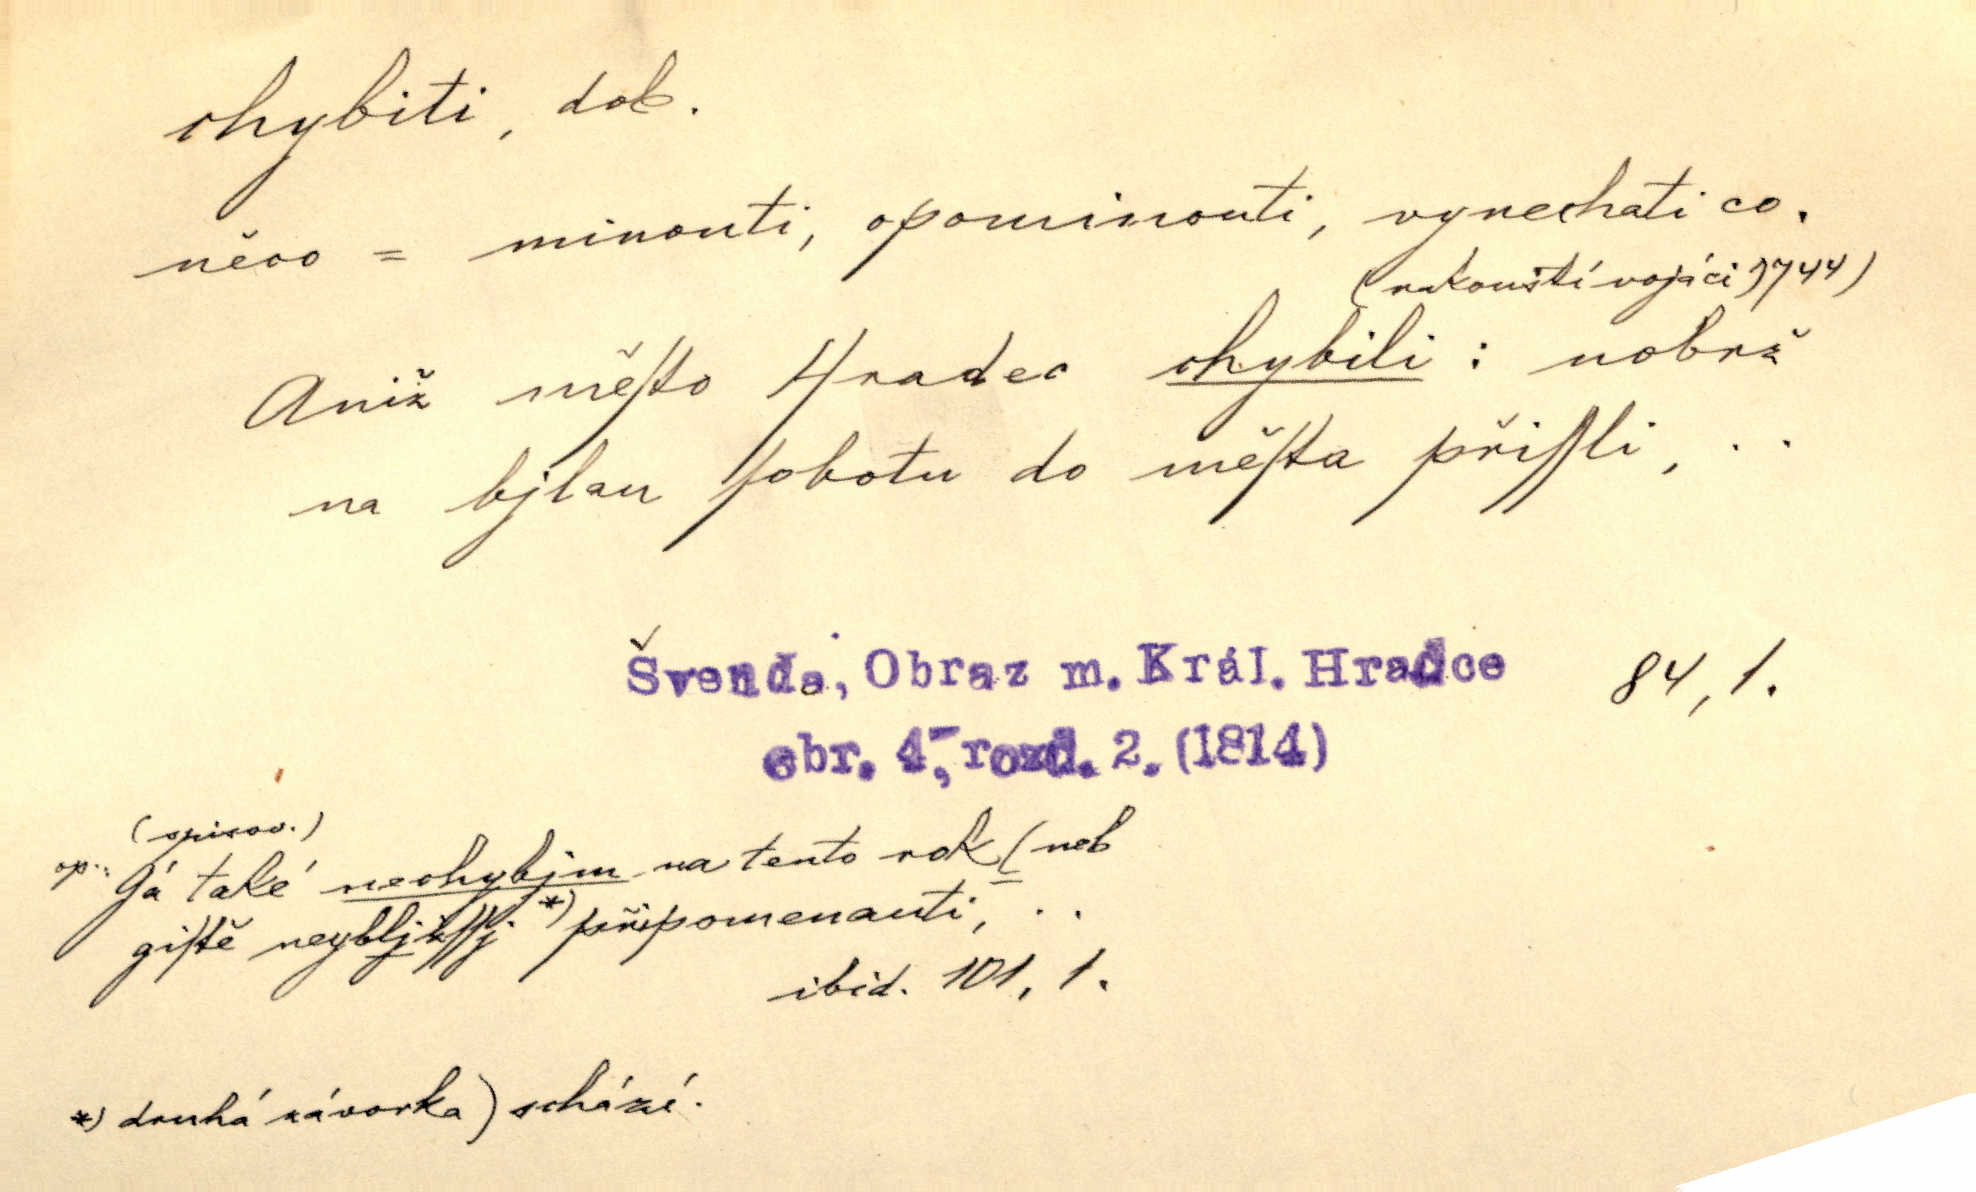 chybiti, dok.
něco = minouti, opominouti, vynechati co.
(rakouští vojáci 1744)
Aniž měſto Hradec chybili : nobrž
na bjlau ſobotu do měſta přiſſli, . .
Švenda, Obraz m. Král. Hradce 84, 1.
obr. 4, rozd. 2. (1814)
(spisov.)
op.: Já také nechybjm na tento rok (neb
giſtě neybljžſſj *) připomenauti, . .
ibid. 101, 1.
*) druhá závorka ) schází.